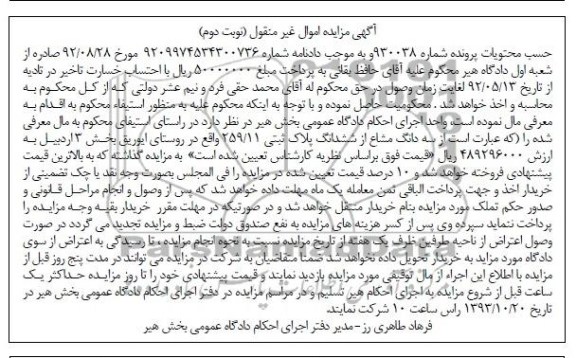 آگهی مزایده اموال غیر منقول (نوبت دوم)
حسب محتویات پرونده شماره ۹۳۰۰۳۸و به موجب دادنامه شماره ۹۲۰۹۹۷۴۵۳۴۳۰۰۷۳۶ مورخ ۹۲/۰۸/۲۸ صادره از
شعبه اول دادگاه هیر محکوم علیه آقای حافظ بقائی به پرداخت مبلغ ۵۰۰۰۰۰۰۰۰ ریال با احتساب خسارت تاخیر در تادیه
از تاریخ ۹۲/۰۵/۱۳ لغایت زمان وصول در حق محکوم له آقای محمد حقی فرد و نیم عشر دولتی که از کل محکوم به
محاسبه و اخذ خواهد شد . محکومیت حاصل نموده و با توجه به اینکه محکوم علیه به منظور استیفاء محکوم به اقدام به
معرفی مال نموده است، واحد اجرای احکام دادگاه عمومی بخش هیر در نظر دارد در راستای استیفای محکوم به مال معرفی
شده را (که عبارت است از سه دانگ مشاع از ششدانگ پلاک ثبتی ۲۵۹/۱۱ واقع در روستای ایوریق بخش ۳ اردبیل به
ارزش ۴۸۹۲۹۶۰۰۰ ریال «قیمت فوق براساس نظریه کارشناس تعیین شده است» به مزایده گذاشته که به بالاترین قیمت
پیشنهادی فروخته خواهد شد و ۱۰ درصد قیمت تعیین شده در مزایده را فی المجلس بصورت وجه نقد یا چک تضمینی از
خریدار اخذ و جهت پرداخت الباقی ثمن معامله یک ماه مهلت داده خواهد شد که پس از وصول و انجام مراحل قانونی و
صدور حکم تملک مورد مزایده بنام خریدار منتقل خواهد شد و در صورتیکه در مهلت مقرر خریدار بقیه وجه مزایده را
پرداخت ننماید سپرده وی پس از کسر هزینه های مزایده به نفع صندوق دولت ضبط و مزایده تجدید می گردد در صورت
وصول اعتراض از ناحیه طرفین ظرف یک هفته از تاریخ مزایده نسبت به نحوه انجام مزایده ، تا رسیدگی به اعتراض از سوی
دادگاه مورد مزاید به خریدار تحویل داده نخواهد شد ضمناً متقاضیان به شرکت در مزایده می توانند در مدت پنج روز قبل از
مزایده با اطلاع این اجراء از مال توقیفی مورد مزایده بازدید نمایند و قیمت پیشنهادی خود را تا روز مزایده حداکثر یک
ساعت قبل از شروع مزایده به اجرای احکام هیر تسلیم و در مراسم مزایده در دفتر اجرای احکام دادگاه عمومی بخش هیر در
تاریخ ۱۳۹۳/۱۰/۲۰ راس ساعت ۱۰ شرکت نمایند.
فرهاد طاهری رز -مدیر دفتر اجرای احکام دادگاه عمومی بخش هیر